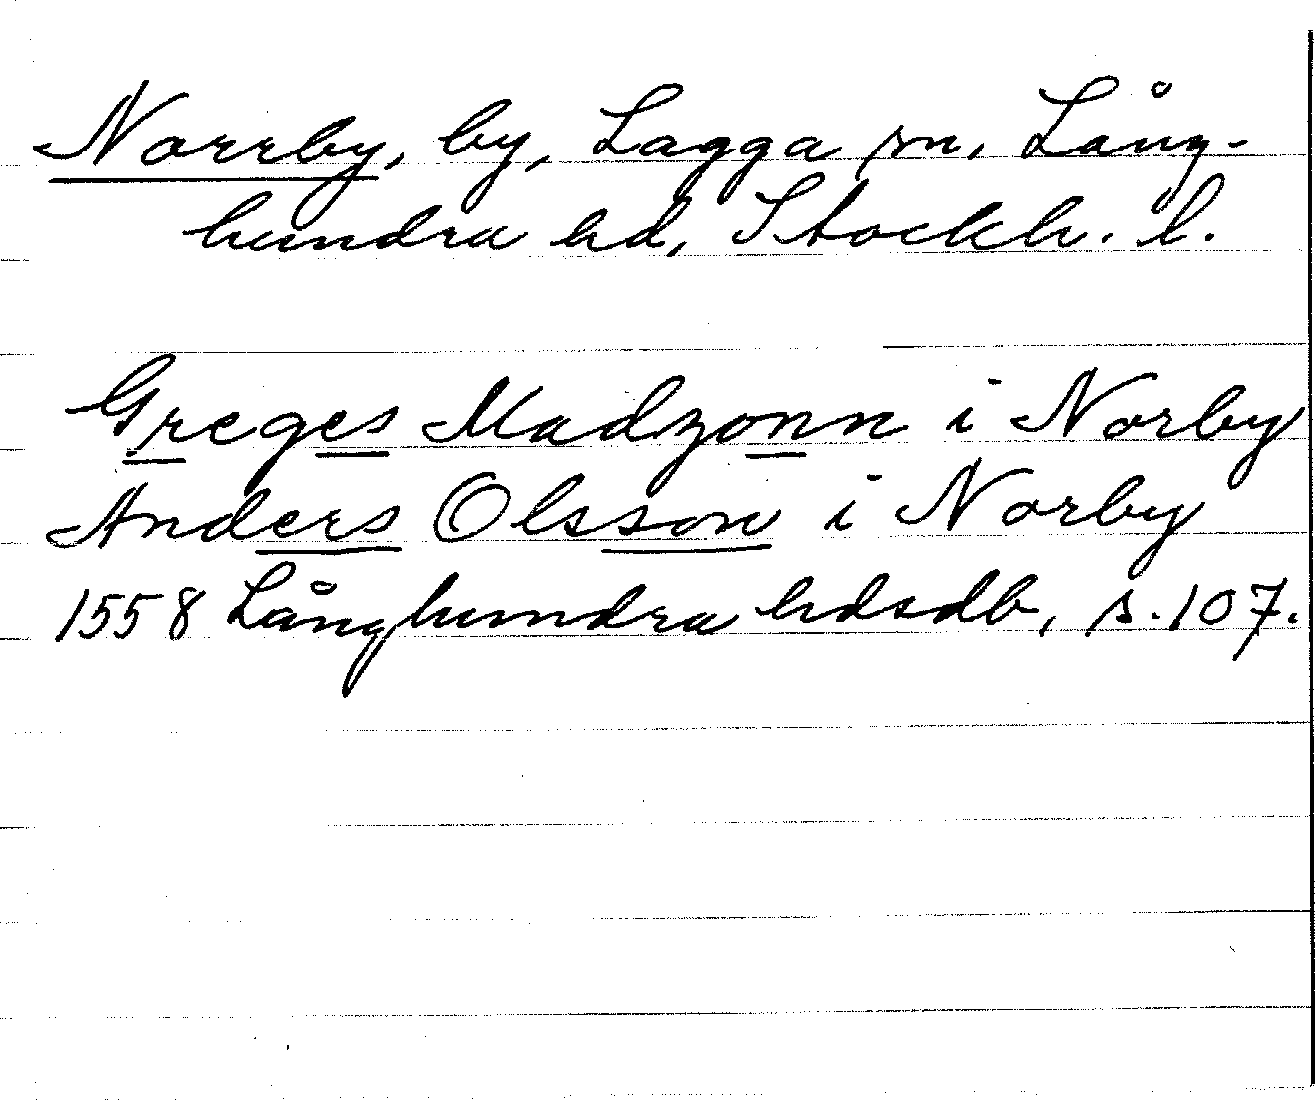 Norrby, by, Lagga sn, Lång-
hundra hd, Stockh. l.
Greges Madzonn i Norby
Anders Olsson i Norby
1558 Långhundra hdsdb, s. 107.